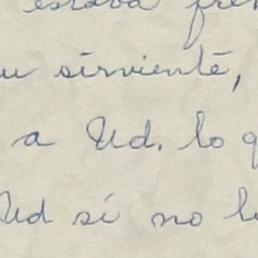 estava fre
u sirvienté,
a Ud. lo q
Ud sí no l